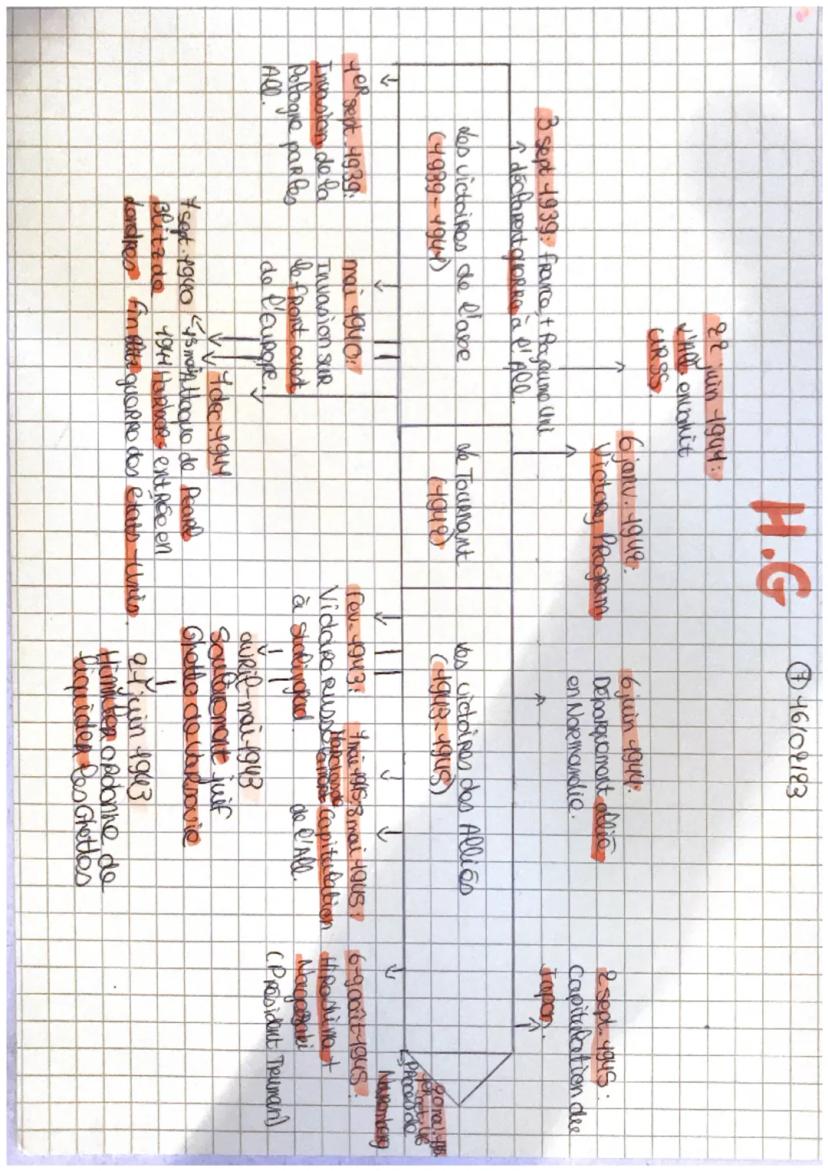 H.G
⑦ 16/02/23
22 juin 1941:
l'All. envahit
URSS.
6 janv. 1942:
Victory Program
6 juin 1944:
Débarquement allié
en Normandie.
2 sept. 1945:
Capitulation du
Japon.
3 sept 1939: France + Royaume Uni
déclarent guerre à l'All.
Les victoires de l'axe
(1939-1941)
Le Tournant
(1942)
Les victoires des Alliés
(1943-1945)
1er sept. 1939:
Invasion de la
Pologne par les
All.
mai 1940:
Invasion sur
le front ouest
de l'Europe.
7 sept. 1940
Blitz de
Londres
7 dec. 1941
attaque de Pearl
Harbor entrée en
guerre des États-Unis.
fev. 1943:
Victoire russe
à Stalingrad.
avril-mai 1943
Soulèvement juif
Ghetto de Varsovie
21 juin 1943
Himmler ordonne de
liquider les Ghettos
7 mai 1945
8 mai 1945:
Capitulation
de l'All.
6-9 août 1945:
Hiroshima +
Nagasaki
(Président Truman)
Procès de
Nuremberg